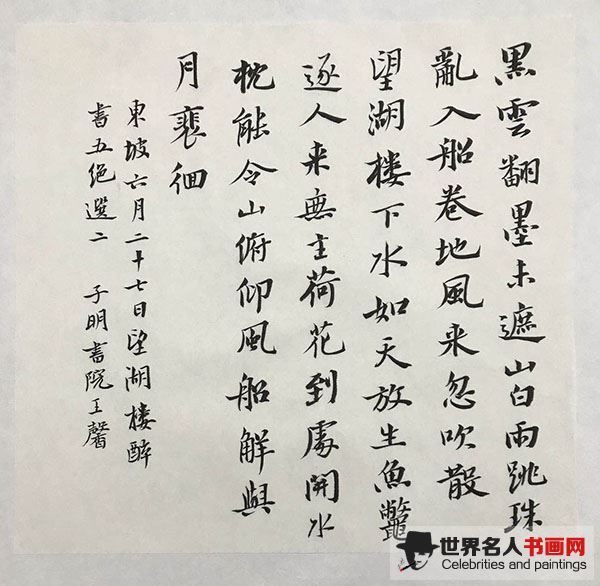 黑雲翻墨未遮山白雨跳珠
亂入船卷地風来忽吹散
望湖樓下水如天放生魚鼈
逐人来無主荷花到處開水
枕能令山俯仰風船解與
月裴徊
東坡六月二十七日望湖樓醉
書五絕選二 子明書院王馨
世界名人书画网
Celebrities and paintings